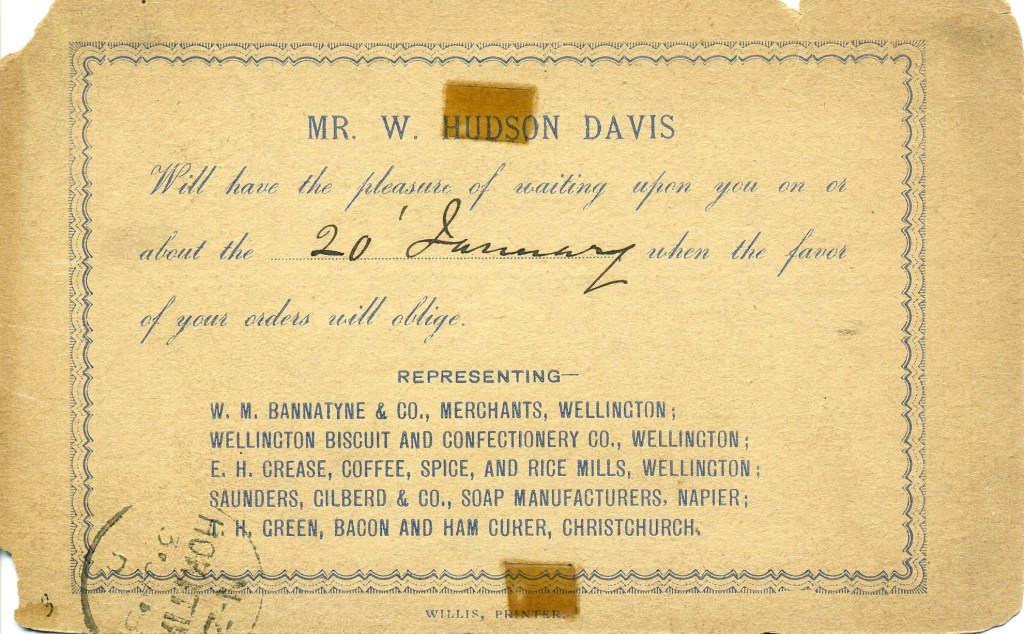 MR. W. HUDSON DAVIS
Will have the pleasure of waiting upon you on or
about the 20' January when the favor
of your orders will oblige.
REPRESENTING—
W. M. BANNATYNE & CO., MERCHANTS, WELLINGTON;
WELLINGTON BISCUIT AND CONFECTIONERY CO., WELLINGTON;
E. H. CREASE, COFFEE, SPICE, AND RICE MILLS, WELLINGTON;
SAUNDERS, GILBERD & CO., SOAP MANUFACTURERS, NAPIER;
T. H. GREEN, BACON AND HAM CURER, CHRISTCHURCH.
WILLIS, PRINTER.